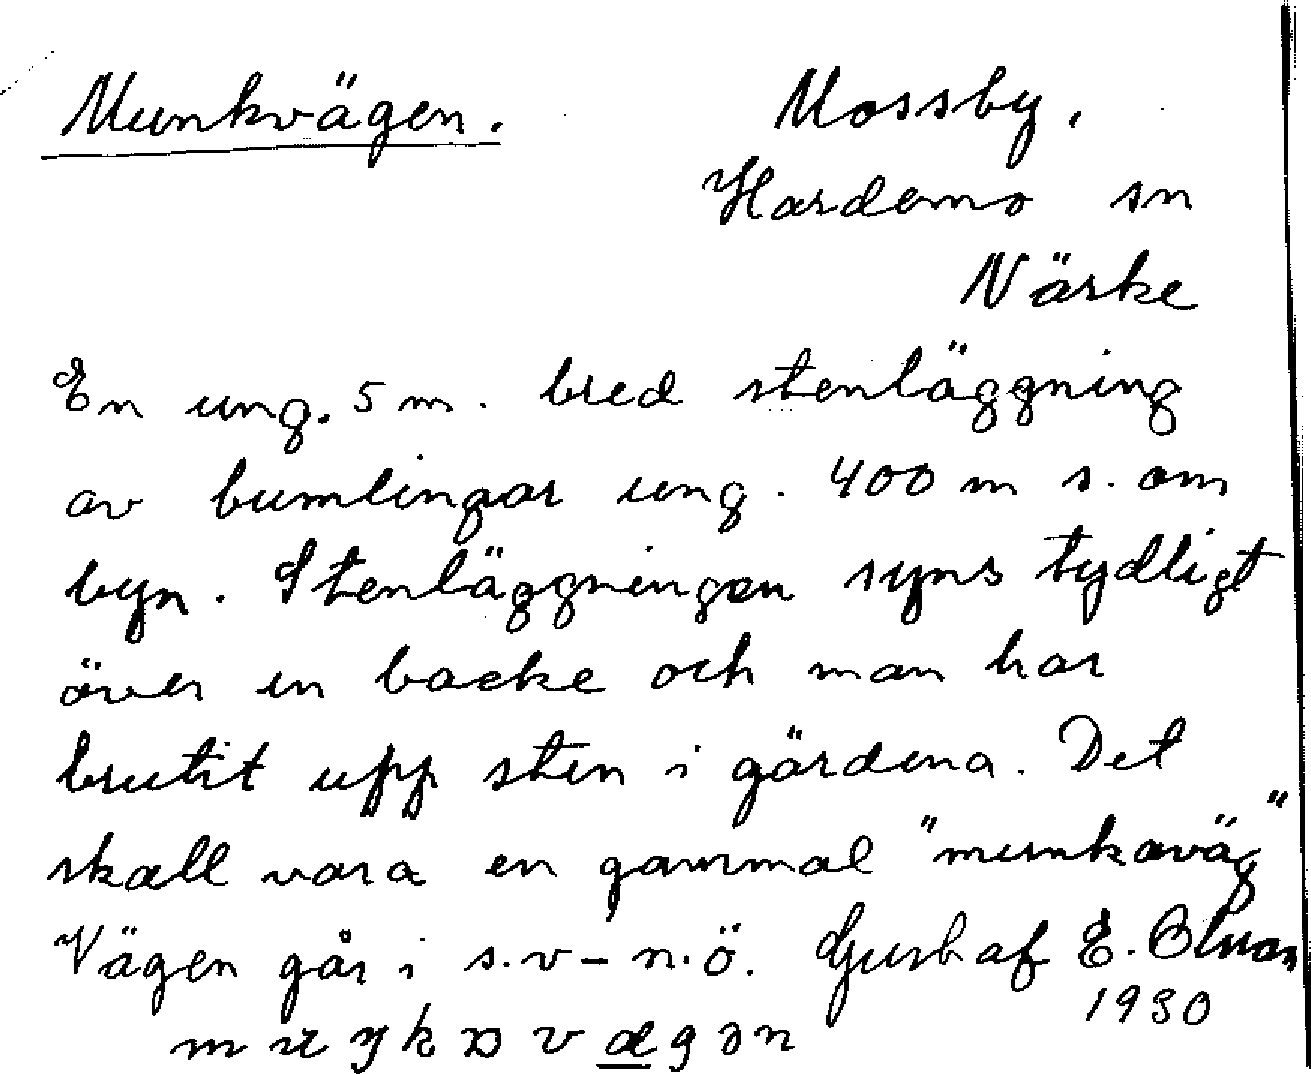 Munkvägen. Mossby,
Hardemo sn
Närke
En ung. 5 m. bred stenläggning
av bumlingar ung. 400 m s. om
byn. Stenläggningen syns tydligt
över en backe och man har
brutit upp sten i gärdena. Det
skall vara en gammal "munkaväg"
Vägen går i s.v – n.ö. Gustaf E.
1930